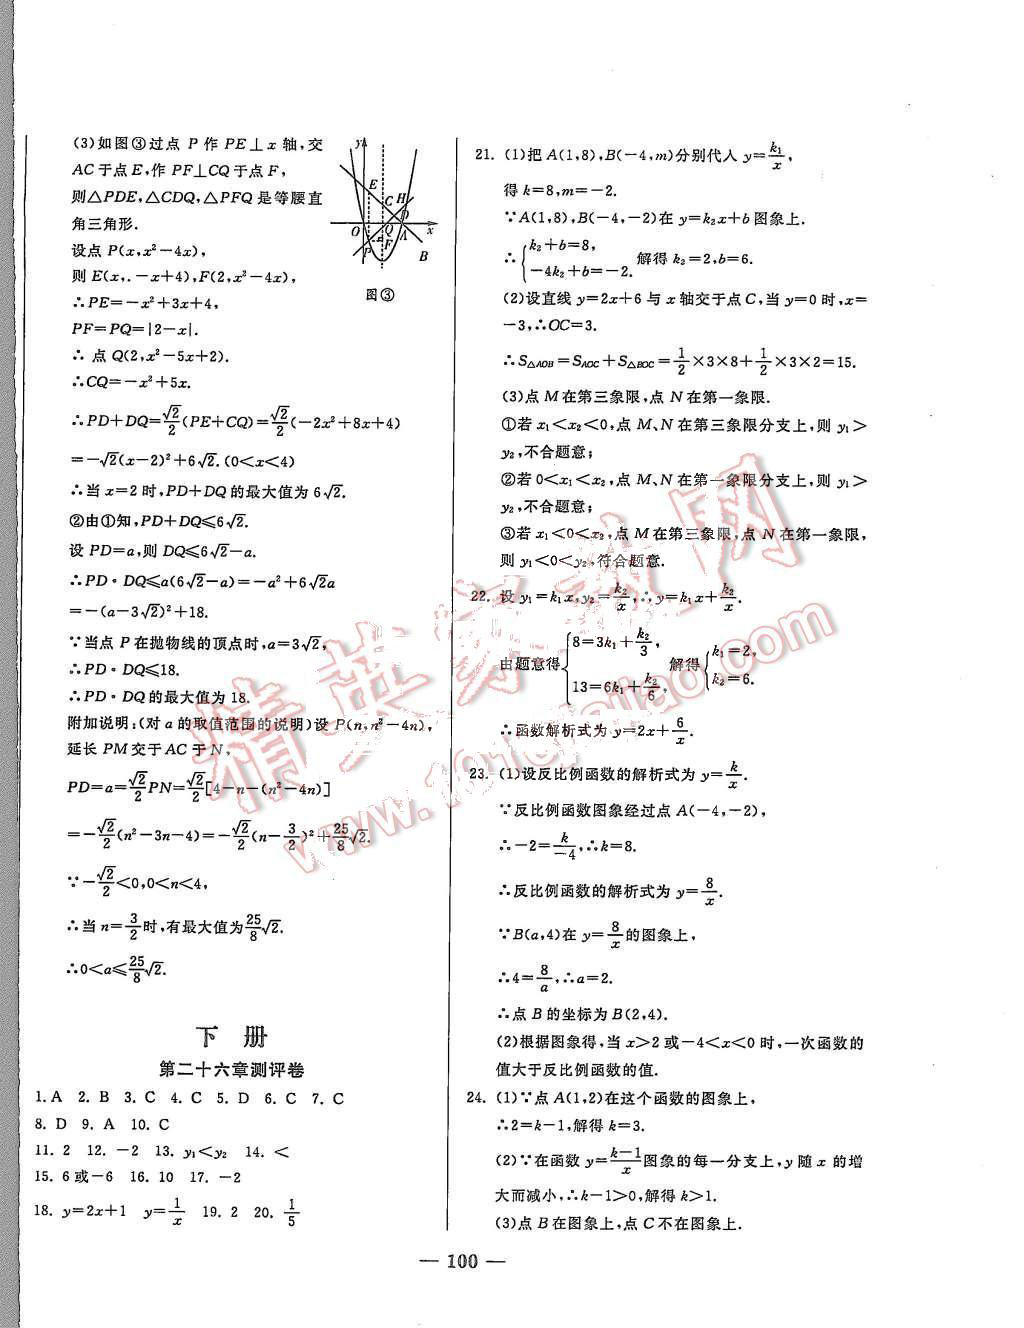 (3)如图③过点 P 作 PE⊥x 轴,交
AC于点E,作 PF⊥CQ于点F,
则△PDE,△CDQ,△PFQ 是等腰直
角三角形.
设点 P(x,x²-4x),
则 E(x,.-x+4),F(2,x²-4x),
∴PE=-x²+3x+4,
PF=PQ=|2-x|.
∴ 点 Q(2,x²-5x+2).
∴CQ=-x²+5x.
∴PD+DQ=√2/2(PE+CQ)=√2/2(-2x²+8x+4)
=-√2(x-2)²+6√2.(0<x<4)
∴当 x=2 时,PD+DQ 的最大值为 6√2.
②由①知,PD+DQ≤6√2.
设 PD=a,则 DQ≤6√2-a.
∴PD·DQ≤a(6√2-a)=-a²+6√2a
=-(a-3√2)²+18.
∵当点 P 在抛物线的顶点时,a=3√2,
∴PD·DQ≤18.
∴PD·DQ的最大值为 18.
附加说明:(对 a 的取值范围的说明)设 P(n,n²-4n),
延长 PM交于 AC 于 N,
PD=a=√2/2PN=√2/2[4-n-(n²-4n)]
=-√2/2(n²-3n-4)=-√2/2(n-3/2)²+25/8√2.
∵-√2/2<0,0<n<4,
∴当 n=3/2时,有最大值为25/8√2.
∴0<a≤25/8√2.
y
E
C
H
D
O
Q
A
x
P
F
B
图③
下 册
第二十六章测评卷
1. A 2. B 3. C 4. C 5. D 6. C 7. C
8. D 9. A 10. C
11. 2 12. -2 13. y₁<y₂ 14. <
15. 6或-6 16. 10 17. -2
18. y=2x+1 y=1/x 19. 2 20. 1/5
21. (1)把 A(1,8),B(-4,m)分别代入 y=k₁/x,
得 k=8,m=-2.
∵A(1,8),B(-4,-2)在 y=k₂x+b 图象上.
∴{k₂+b=8, -4k₂+b=-2. 解得 k₂=2,b=6.
(2)设直线 y=2x+6 与 x 轴交于点 C,当 y=0 时,x=
-3,∴OC=3.
∴S△AOB=SAOC+S△BOC=1/2×3×8+1/2×3×2=15.
(3)点 M 在第三象限,点 N 在第一象限.
①若 x₁<x₂<0,点 M、N 在第三象限分支上,则 y₁>
y₂,不合题意;
②若 0<x₁<x₂,点 M、N 在第一象限分支上,则 y₁>
y₂,不合题意;
③若 x₁<0<x₂,点 M 在第三象限,点 N 在第一象限,
则 y₁<0<y₂,符合题意.
22. 设 y₁=k₁x,y₂=k₂/x,∴y=k₁x+k₂/x.
由题意得{8=3k₁+k₂/3, 13=6k₁+k₂/6. 解得{k₁=2, k₂=6.
∴函数解析式为 y=2x+6/x.
23. (1)设反比例函数的解析式为 y=k/x.
∵反比例函数图象经过点 A(-4,-2),
∴-2=k/-4,∴k=8.
∴反比例函数的解析式为 y=8/x.
∵B(a,4)在 y=8/x的图象上,
∴4=8/a,∴a=2.
∴点 B 的坐标为 B(2,4).
(2)根据图象得,当 x>2 或-4<x<0 时,一次函数的
值大于反比例函数的值.
24. (1)∵点 A(1,2)在这个函数的图象上,
∴2=k-1,解得 k=3.
(2)∵在函数 y=k-1/x图象的每一分支上,y 随 x 的增
大而减小,∴k-1>0,解得 k>1.
(3)点 B 在图象上,点 C 不在图象上.
精英家教网
www.1010jiajiao.com
— 100 —